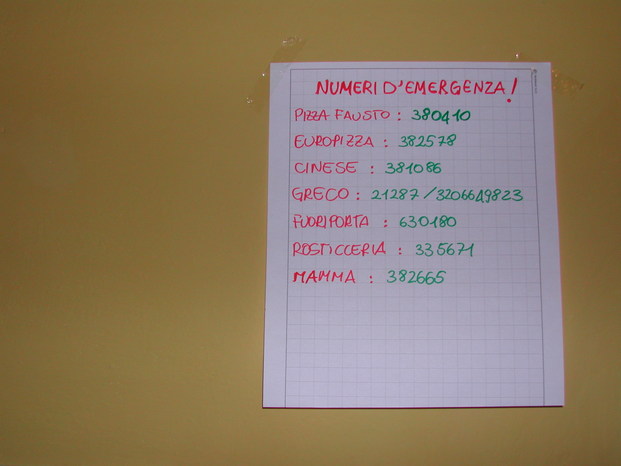 NUMERI D'EMERGENZA!
PIZZA FAUSTO: 380410
EUROPIZZA : 382578
CINESE : 381086
GRECO: 21287/3206649823
FUORIPORTA : 630180
ROSTICCERIA : 335671
MAMMA : 382665